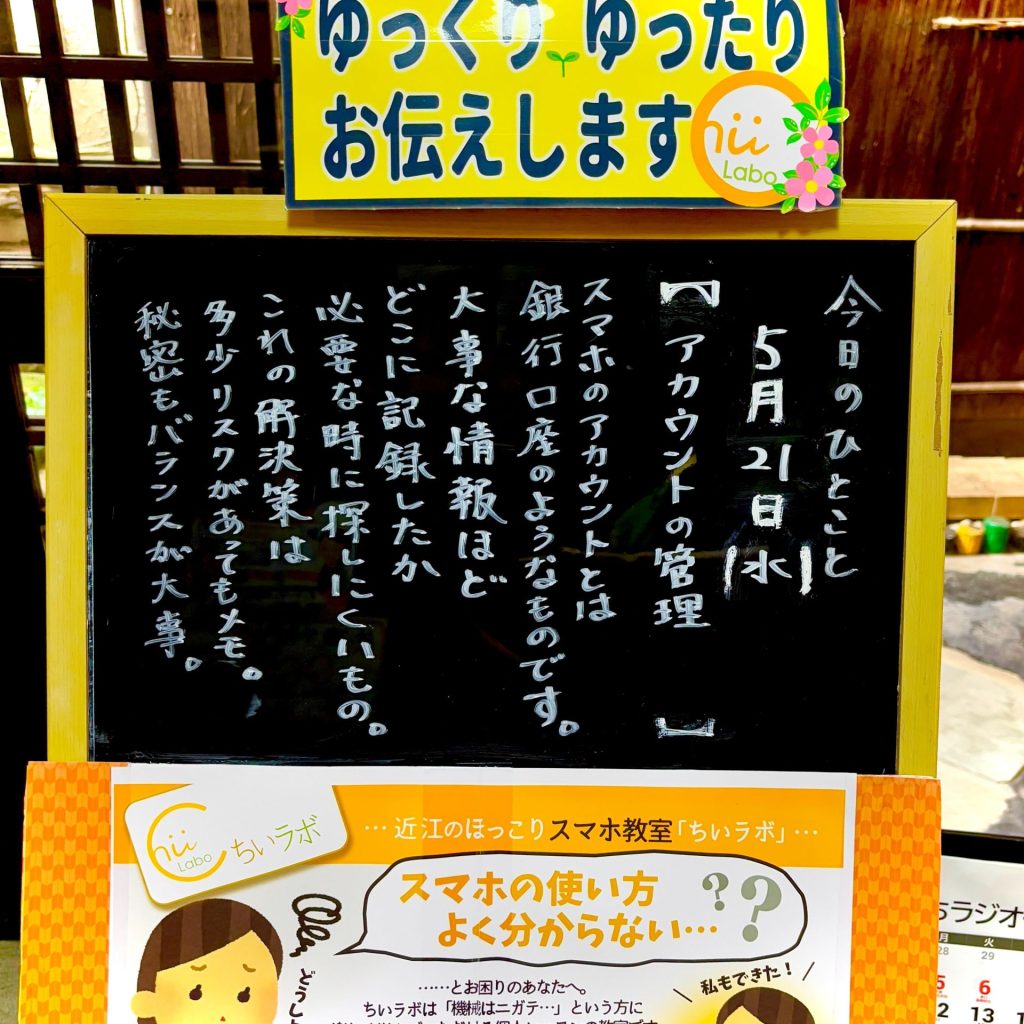 ゆっくり ゆったり
お伝えします
hii
Labo
今日のひとこと
5月21日(水)
【アカウントの管理】
スマホのアカウントとは
銀行口座のようなものです。
大事な情報ほど
どこに記録したか
必要な時に探しにくいもの。
これの解決策は
多少リスクがあってもメモ。
秘密もバランスが大事。
Chii
Labo
ちいラボ
…近江のほっこりスマホ教室「ちいラボ」…
スマホの使い方
よく分からない…
??
どうし
……とお困りのあなたへ。
ちいラボは「機械はニガテ…」という方に
私もできた!
ラジオ
月 火
28 29
5 6
2 13